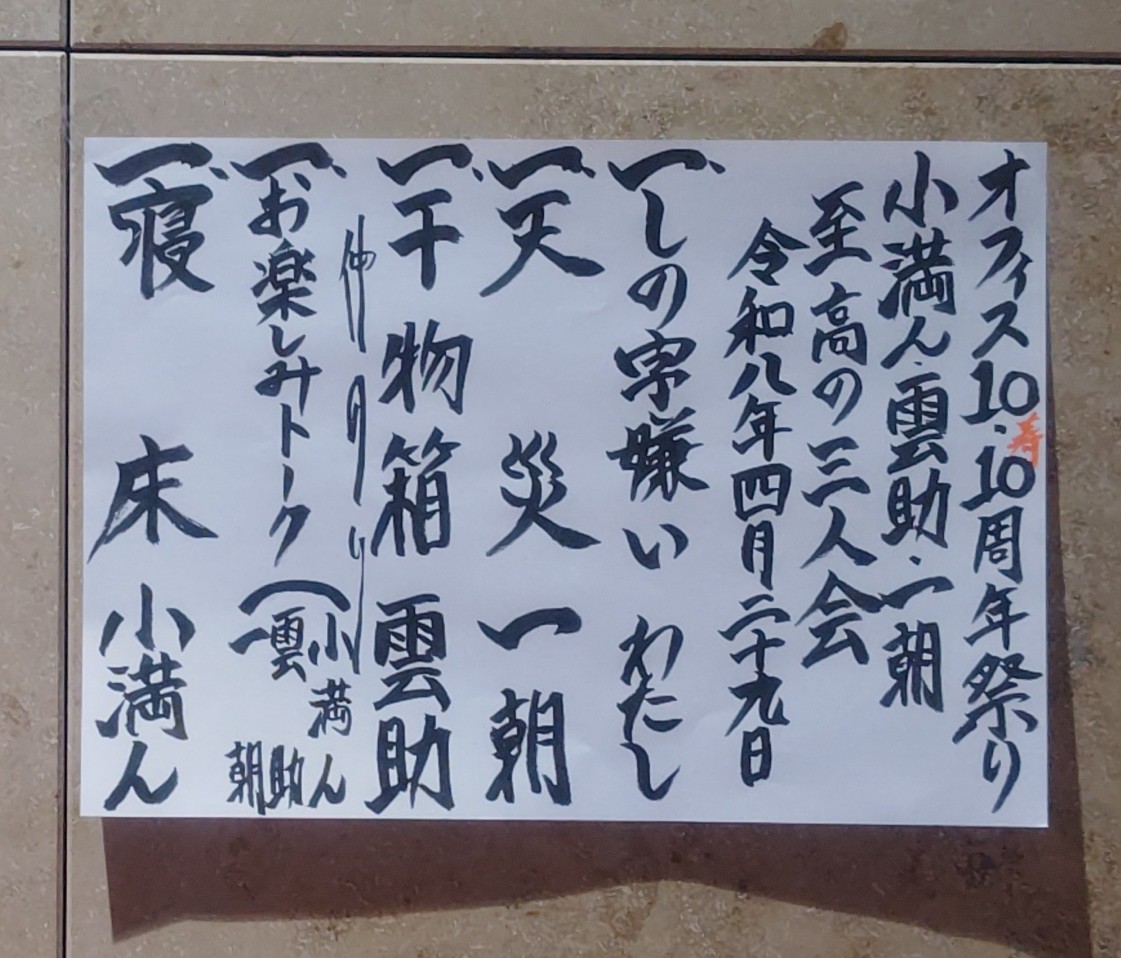 オフィス10・10周年祭り
寿
小満ん・雲助・一朝
至高の三人会
令和八年四月二十九日
一、しの字嫌い わたし
一、天災 一朝
一、干物箱 雲助
仲入り
一、お楽しみトーク(小満ん 雲助 一朝
一、寝床 小満ん